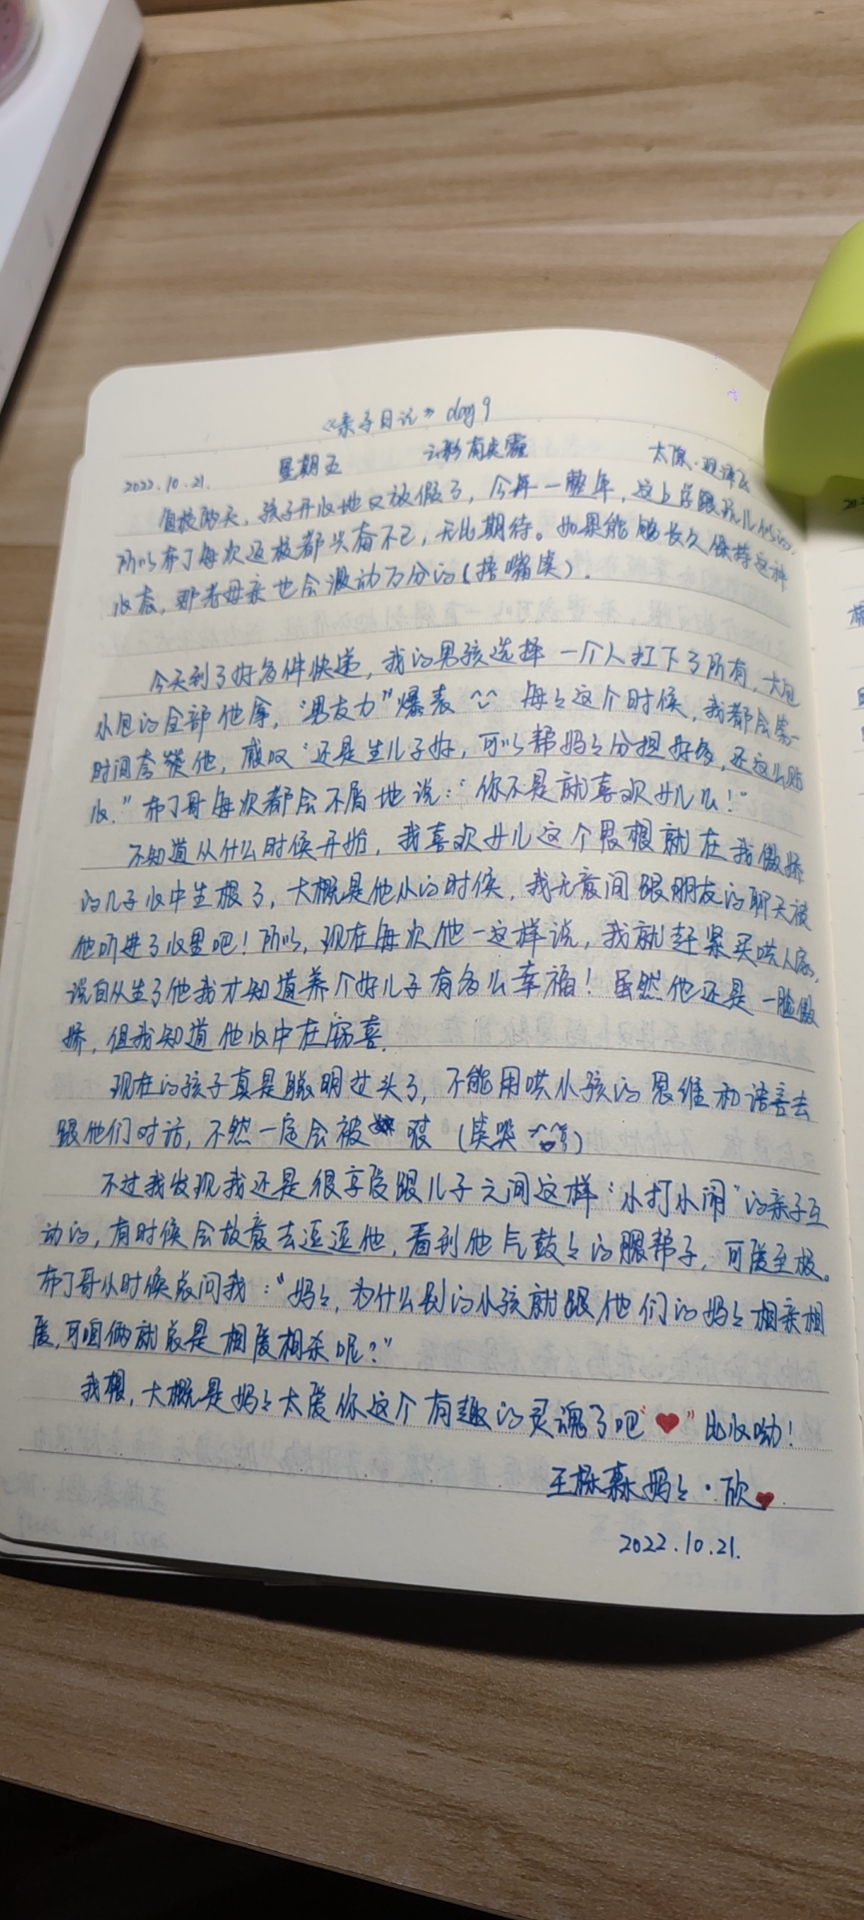 《亲子日记》day 9
2022.10.21. 星期五 太原·
返校两天，孩子开心地又放假了，今年一整年，这上学跟玩儿似的，
所以布丁每次返校都兴奋不已，无比期待。如果能够长久保持这种
心态，那老母亲也会激动万分的（捂嘴笑）.
今天到了好多件快递，我的男孩选择一个人扛下了所有，大包
小包的全部他拿，“男友力”爆表 每々这个时候，我都会第一
时间夸赞他，感叹“还是生儿子好，可以帮妈々分担好多，还这么贴
心.”布丁哥每次都会不屑地说：“你不是就喜欢女儿么！”
不知道从什么时候开始，我喜欢女儿这个思想就在我傲娇
的儿子心中生根了，大概是他小的时候，我无意间跟朋友的聊天被
他听进了心里吧！所以，现在每次他一这样说，我就赶紧哄人家，
说自从生了他我才知道养个好儿子有多么幸福！虽然他还是一脸傲
娇，但我知道他心中在窃喜.
现在的孩子真是聪明过头了，不能用哄小孩的思维和语言去
跟他们对话，不然一定会被怼（笑哭）
不过我发现我还是很享受跟儿子之间这样“小打小闹”的亲子互
动的，有时候会故意去逗逗他，看到他气鼓々的腮帮子，可爱至极。
布丁哥小时候总问我：“妈々，为什么别的小孩就跟他们的妈々相亲相
爱，可咱俩就总是相爱相杀呢？”
我想，大概是妈々太爱你这个有趣的灵魂了吧“❤”比心呦！
妈々·欣❤
2022.10.21.